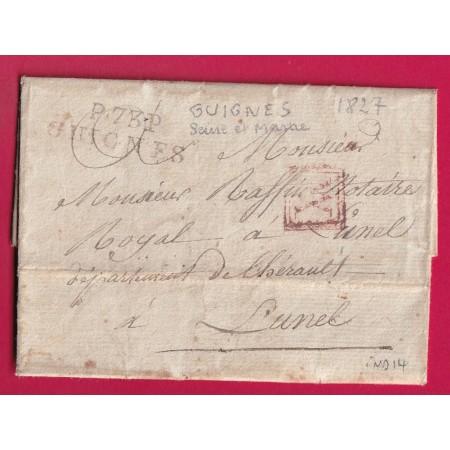 P.73.P
GUIGNES
GUIGNES
Seine et Marne
1827
Monsieur
Monsieur Raffin Notaire
Royal, à Lunel
département de l'hérault
à Lunel
IND 14